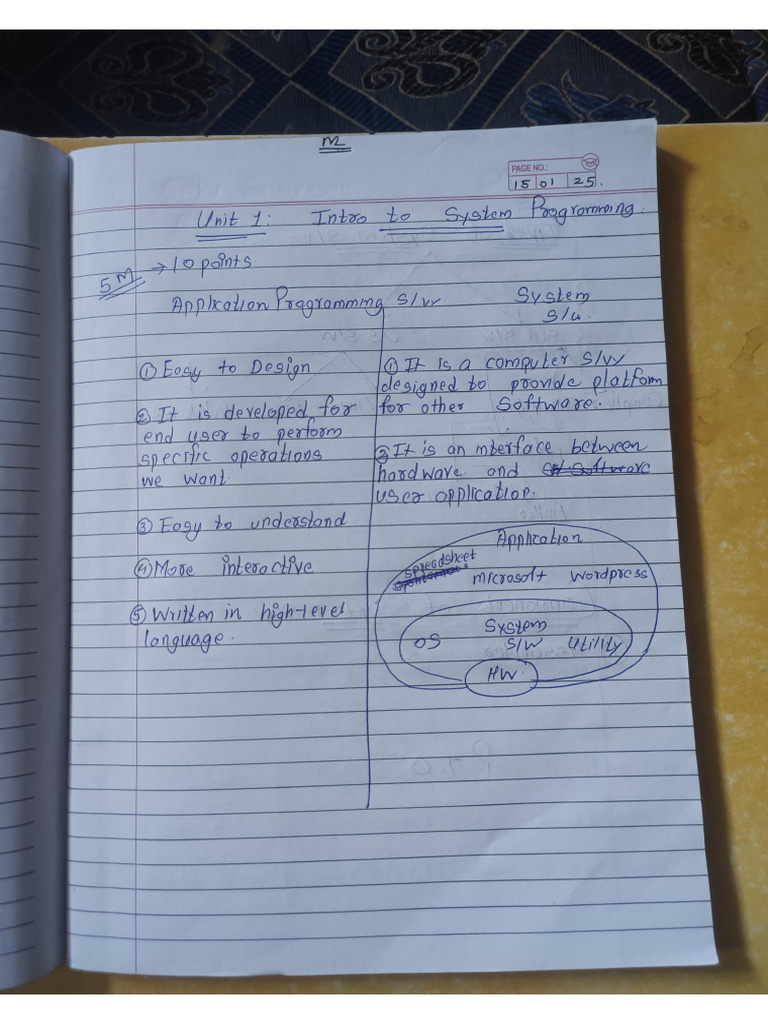 M
PAGE NO.:
15 01 25.
Unit 1: Intro to System Programming.
5M → 10 points.
Application Programming S/W
① Easy to Design
② It is developed for
end user to perform
specific operations
we want.
③ Easy to understand
④ More interactive
⑤ Written in high-level
language.
System
S/w.
① It is a computer S/W
designed to provide platform
for other Software.
② It is an interface between
hardware and
user application.
Application
spreadsheet
microsoft Wordpress
System
OS S/W Utility
HW.